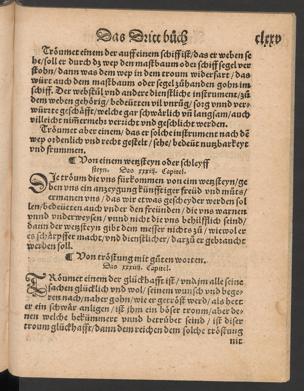 Das Dritt büch clxxv
Troümet einem der auff einem schiff ist/ das er weben se
he/ soll er durch dz wep den mastbaum oder schiff segel ver
stohn/ dann was dem wep in dem troum widerfart/ das
würt auch dem mastbaum oder segel zühanden gohn im
schiff. Der webstül vnd andere dienstliche instrument/ zü
dem weben gehörig/ bedeütten vil vnrüg/ sorg vnnd ver-
würrte geschäfft/ welche gar schwärlich vn̄ langsam/ auch
villeicht nüm̄ermehr verricht vnd geschlicht werden.
Troümet aber einem/ das er solche instrument nach dē
wep ordenlich vnd recht gestelt/ sehe/ bedeüt nutzbarkeyt
vnd frummen.
¶ Von einem wetzsteyn oder schleyff
steyn. Das xxxij. Capitel.
Die troum die vns fürkommen von eim wetzsteyn/ ge
ben vns ein anzeygung künfftiger freüd vnd müts/
ermanen vns/ das wir etwas gescheyder werden sol
len/ bedeütten auch vnder den freünden/ die vns warnen
vnnd vnderweysen/ vnnd nicht dir vns behilfflich seind/
dann der wetzsteyn gibt dem messer nichts zü/ wiewol er
es schärpffer macht/ vnd dienstlicher/ darzü er gebraucht
werden soll.
¶ Von tröstung mit güten worten.
Das xxxiij. Capitel.
TRoümet einem der glückhafft ist/ vnd im alle seine
sachen glücklich vnd wol/ seinem wunsch vnd bege-
ren nach/ naher gohn/ wie er getröst werd/ als hett
er ein schwär anligen/ ist jhm ein böser troum/ aber de-
nen welche bekümmert vnnd betrübet seind/ ist diser
troum glückhafft/ dann dem reichen dem solche tröstung
mit